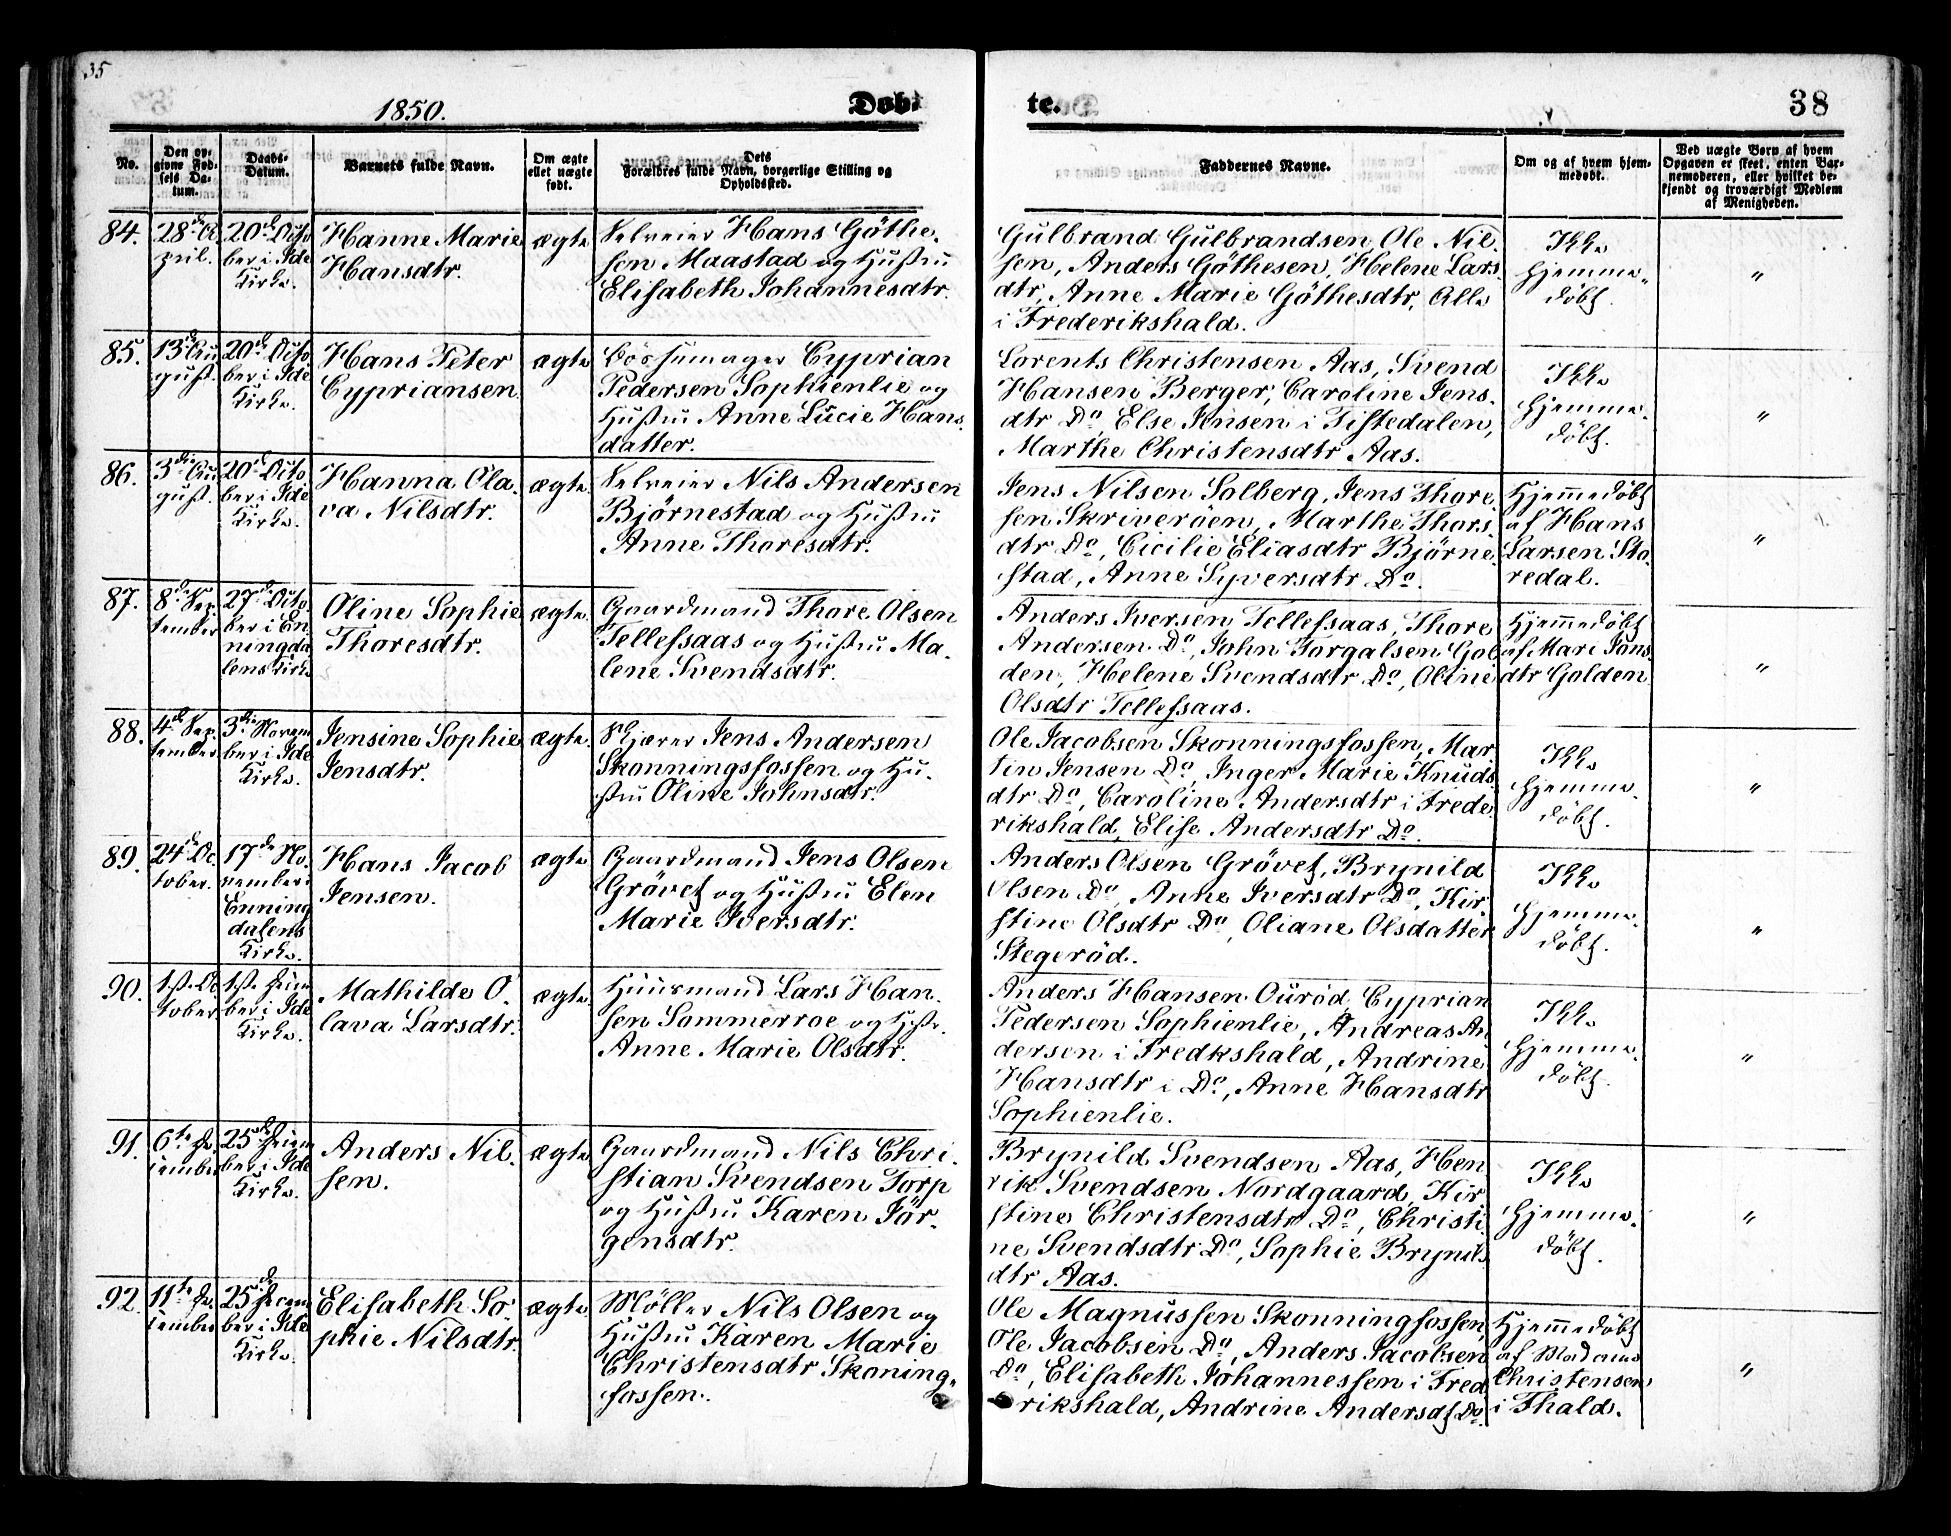 35
1850.
Døb-
te.
38
No.
Den op-
givne Fød-
sels Da-
tum.
Daabs-
Datum.
Barnets fulde Navn.
Om ægte
ellet uægte
født.
Dets
Forældres fulde Navn, borgerlige Stilling og
Opholdssted.
Faddernes Navne.
Om og af hvem hjem-
medøbt.
Ved uægte Børn af hvem
Opgaven er skeet, enten Bar-
nemoderen, eller hvilket be-
kjendt og troværdigt Medlem
af Menigheden.
84.
28de A-
pril.
20de Octo
ber i Ide
Kirke.
Hanne Marie
Hansdtr.
ægte
Selveier Hans Göthe-
sen Maastad og Hustru
Elisabeth Johannesdtr.
Gulbrand Gulbrandsen, Ole Nil-
sen, Anders Göthesen, Helene Lars
dtr, Anne Marie Göthesdtr, Alle
i Frederikshald.
Ikke
hjemme-
døbt.
"
85.
13de Au
gust.
20de Octo
ber i Ide
Kirke.
Hans Peter
Cypriansen
ægte
Bössemager Cyprian
Pedersen Sophienlie og
Hustru Anne Lucie Hans-
datter.
Lorents Christensen Aas, Svend
Hansen Berger, Caroline Jens-
dtr Do, Else Jensen i Tistedalen,
Marthe Christensdtr Aas.
Ikke
hjemme-
døbt.
"
86.
3die Au
gust.
20de Octo
ber i Ide
Kirke.
Hanna Ola-
va Nilsdtr.
ægte
Selveier Nils Andersen
Björnestad og Hustru
Anne Thoresdtr.
Jens Nilsen Solberg, Jens Thore-
sen Skriveröen, Marthe Thors-
dtr Do, Cicilie Eliasdtr Björne-
stad, Anne Syversdtr Do.
Hjemmedøbt
af Hans
Larsen Sto-
redal.
"
87.
8de Sep-
tember
27de Octo-
ber i En-
ningda
lens Kirke
Oline Sophie
Thoresdtr.
ægte
Gaardmand Thore Olsen
Tellefsaas og Hustru Ma-
lene Svendsdtr.
Anders Iversen Tellefsaas, Thore
Andersen Do, John Torgalsen Gol
den, Helene Svendsdtr Do, Oline
Olsdtr Tellefsaas.
Hjemmedøbt
af Mari Jons-
dtr Golden
"
88.
4de Sep-
tember
3die Novem
ber i Ide
Kirke.
Jensine Sophie
Jensdtr.
ægte
Skjærer Jens Andersen
Skonningsfossen og Hu-
stru Oline Johnsdtr.
Ole Jacobsen Skonningsfossen, Mar
tin Jensen Do, Inger Marie Knuds
dtr Do, Caroline Andersdtr i Frede
rikshald, Elise Andersdtr Do.
Ikke
hjemme-
døbt.
"
89.
24de Oc-
tober.
17de No-
vember i
Enning
dalens
Kirke.
Hans Jacob
Jensen.
ægte
Gaardmand Jens Olsen
Grövet og Hustru Elen
Marie Iversdtr.
Anders Olsen Grövet, Brynild
Olsen Do, Anne Iversdtr Do, Kir-
stine Olsdtr Do, Oliane Olsdatter
Stegeröd.
Ikke
hjemme-
døbt.
"
90.
1ste Oc
tober
1ste Decem
ber i Ide
Kirke.
Mathilde O-
lava Larsdtr.
ægte
Huusmand Lars Han-
sen Sommerroe og Hustr.
Anne Marie Olsdtr.
Anders Hansen Ouröd, Cyprian
Pedersen Sophienlie, Andreas An
dersen i Fredkshald, Andrine
Hansdtr i Do, Anne Hansdtr
Sophienlie.
Ikke
hjemme-
døbt.
"
91.
6te De-
cember
25de Decem
ber i Ide
Kirke.
Anders Nil-
sen.
ægte
Gaardmand Nils Chri-
stian Svendsen Torp
og Hustru Karen Jör-
gensdtr.
Brynild Svendsen Aas, Hen
rik Svendsen Nordgaard, Kir
stine Christensdtr Do, Christi
ne Svendsdtr Do, Sophie Brynilds
dtr Aas.
Ikke
hjemme-
døbt.
"
92.
11te De-
cember
25de Decem
ber i Ide
Kirke.
Elisabeth So-
phie Nilsdtr.
ægte
Møller Nils Olsen og
Hustru Karen Marie
Christensdtr Skoning-
fossen.
Ole Magnussen Skonningfossen,
Ole Jacobsen Do, Anders Jacobsen
Do, Elisabeth Johannessen i Fred
rikshald, Andrine Andersdt Do.
Hjemmedøbt
af Madame
Christensen
i Fhald.
"